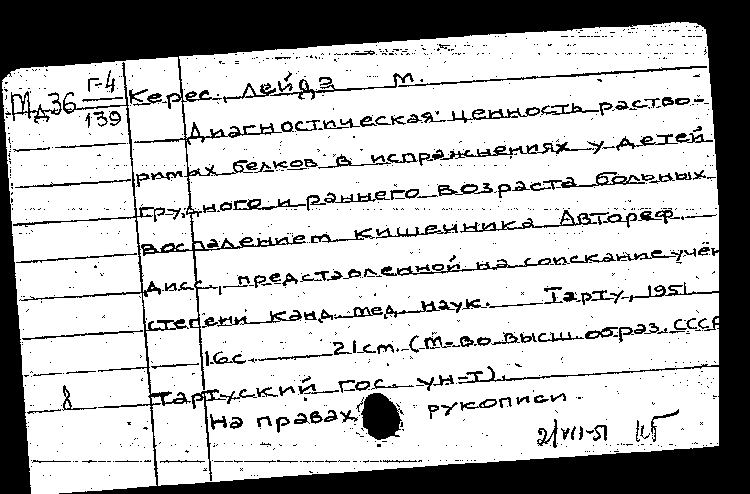 Мд36 Г-4
139
Керес, Лейда М.
Диагностическая ценность раство-
римых белков в испражнениях у детей
грудного и раннего возраста больных
воспалением кишечника Автореф.
дисс., представленной на соискание учён
степени канд. мед. наук. Тарту, 1951.
16с. 21см. (М-во высш. образ. СССР
8 Тартуский гос. ун-т).
На правах рукописи.
2/VII-51